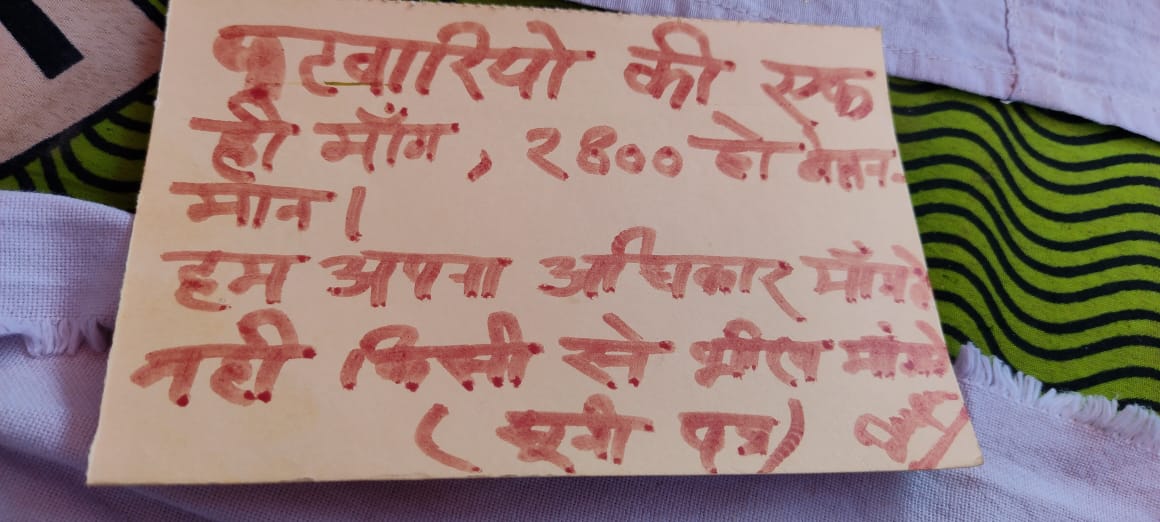 पटवारियो की एक
ही माँग, २८०० हो वेतन-
मान।
हम अपना अधिकार माँगते
नही किसी से भीख मांगते
(खूनी पत्र)